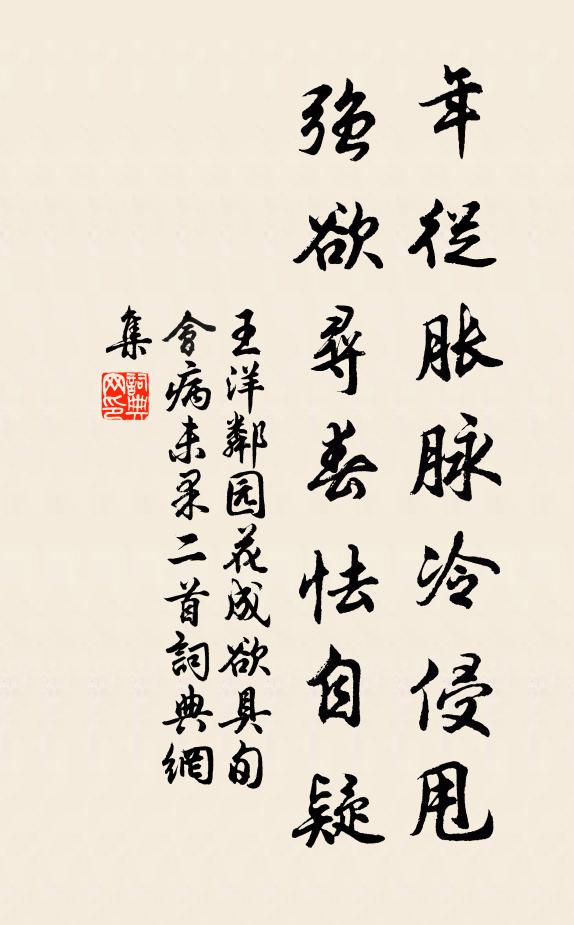 年從脹脉冷侵甩
強欲尋春怯自疑
王洋鄰园花成欲具旬
會病未果二首詞典網
集
詞典网印